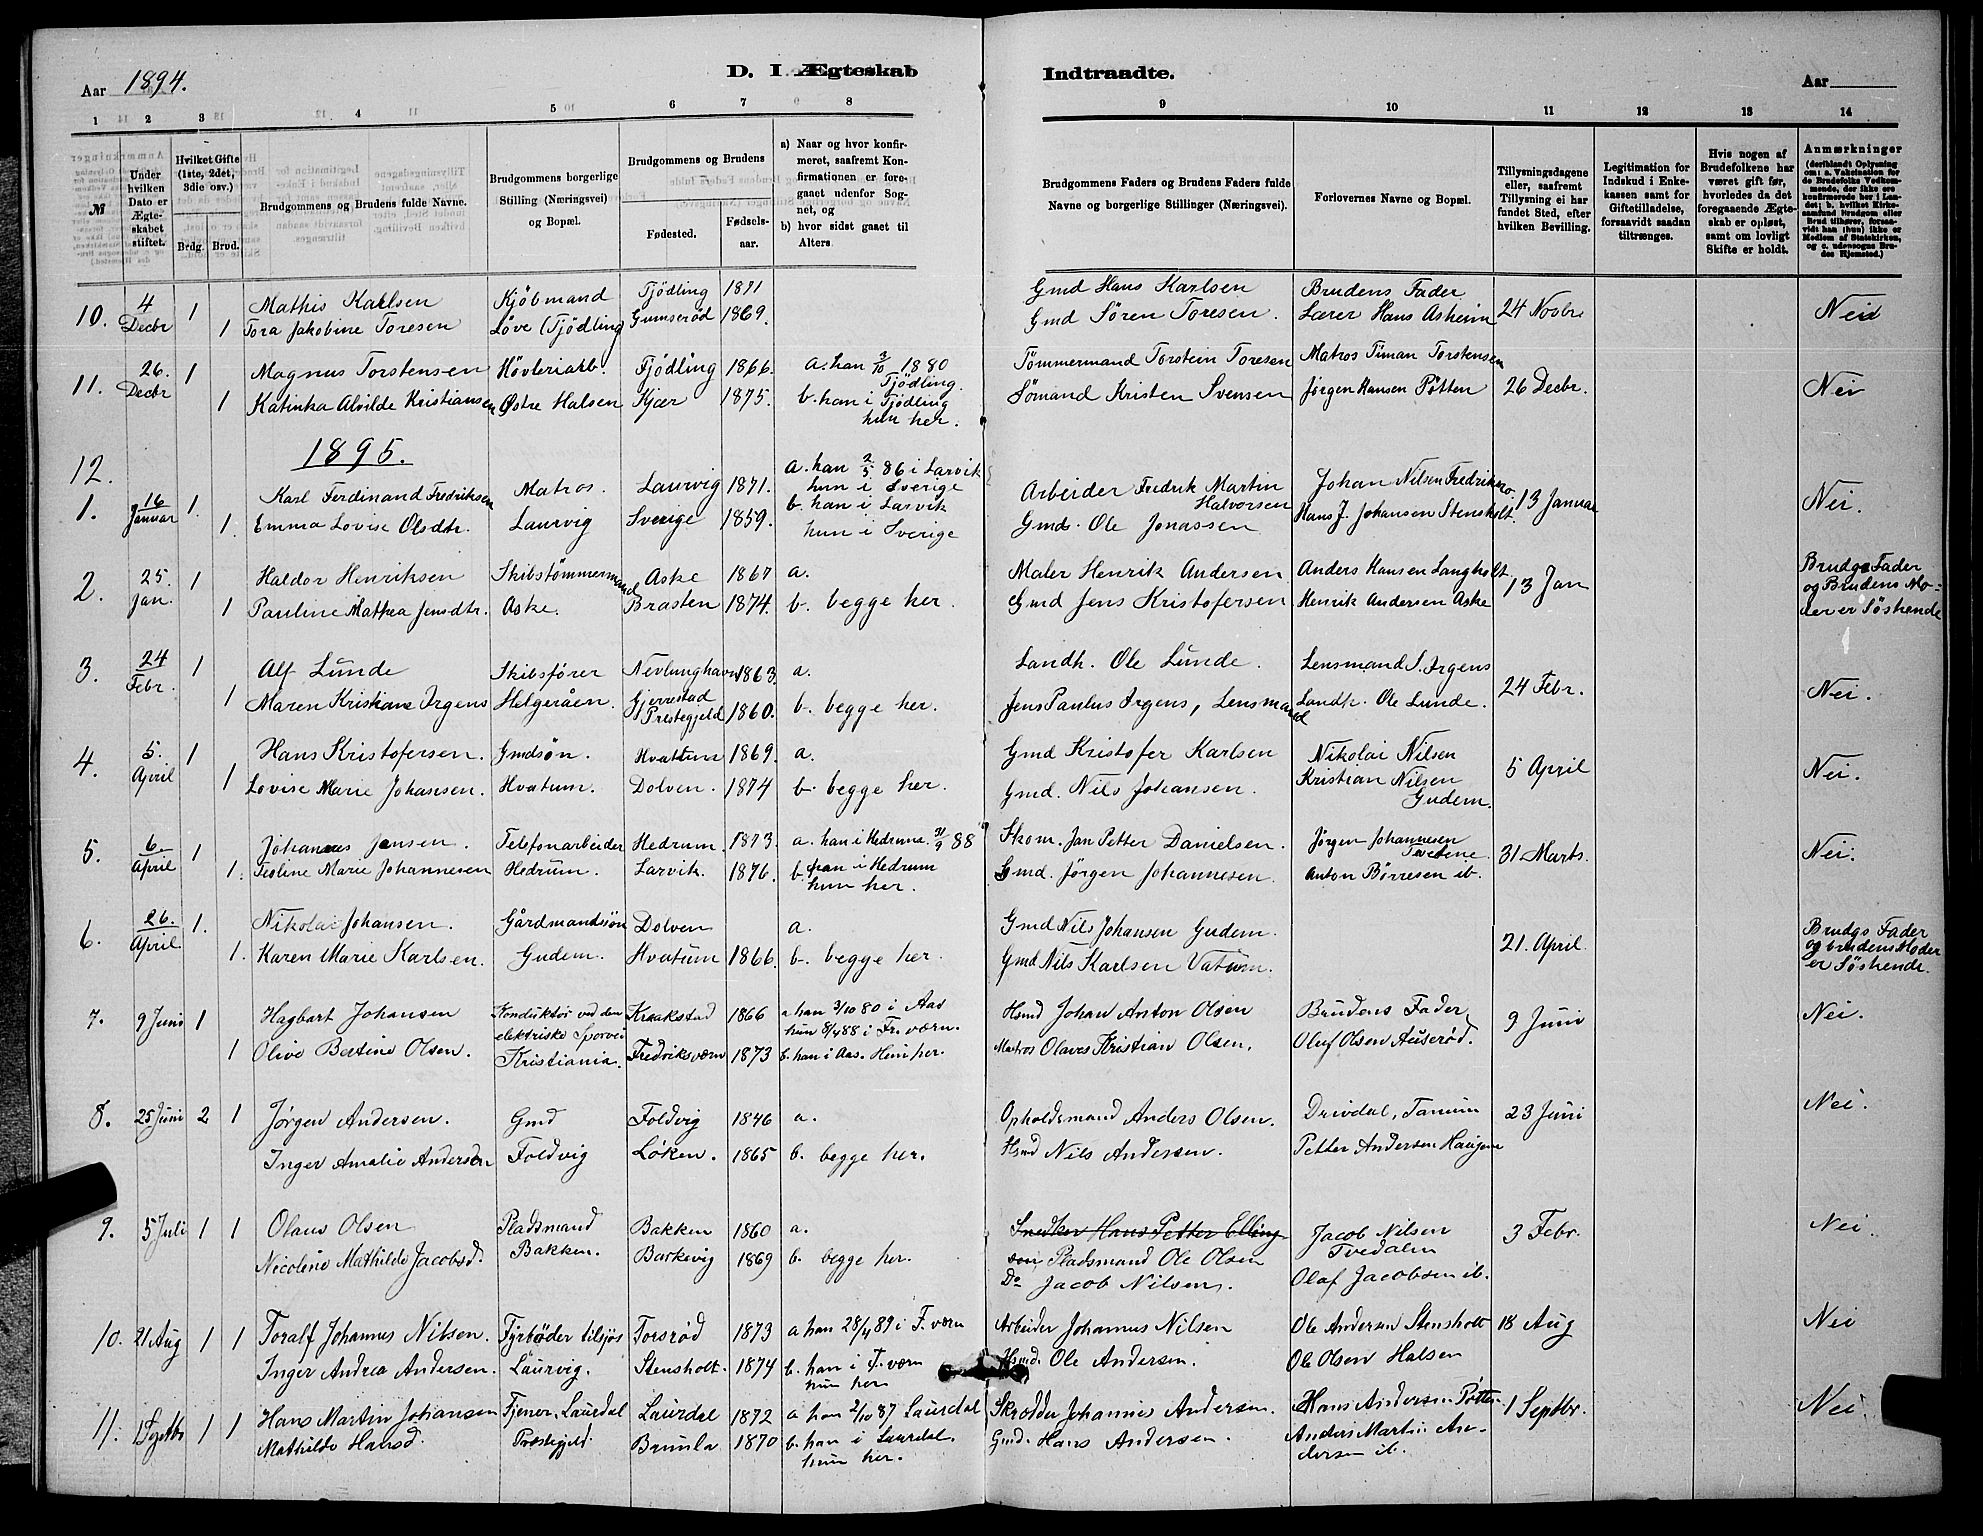 Aar 1894.
D. I. Ægteskab
Indtraadte.
Aar
1 2 3 4 5 6 7 8 9 10 11 12 13 14
№
Under hvilken Dato er Ægteskabet stiftet.
Hvilket Gifte (1ste, 2det, 3die osv.)
Brdg. Brud.
Brudgommens og Brudens fulde Navne.
Brudgommens borgerlige Stilling (Næringsvei) og Bopæl.
Brudgommens og Brudens
Fødested.
Fødselsaar.
a) Naar og hvor konfirmeret, saafremt Konfirmationen er foregaaet udenfor Sognet, og
b) hvor sidst gaaet til Alters.
Brudgommens Faders og Brudens Faders fulde Navne og borgerlige Stillinger (Næringsvei).
Forlovernes Navne og Bopæl.
Tillysningsdagene eller, saafremt Tillysning ei har fundet Sted, efter hvilken Bevilling.
Legitimation for Indskud i Enkekassen samt for Giftetilladelse, forsaavidt saadan tiltrænges.
Hvis nogen af Brudefolkene har været gift før, hvorledes da det foregaaende Ægteskab er opløst, samt om lovligt Skifte er holdt.
Anmærkninger
(deriblandt Oplysning om: a. Vakcination for de Brudefolks Vedkommende, der ikke ere konfirmerede her i Landet; b. hvilket Kirkesamfund Brudgom eller Brud tilhører, forsaavidt han (hun) ikke er Medlem af Statskirken, og c. udensogns Brudes Hjemsted.)
10. 4 Decbr 1 Mathis Karlsen Kjöbmand Tjödling 1871 Gmd Hans Karlsen Brudens Fader 24 Novbr Nei
1 Tora Jakobine Toresen Löve (Tjödling) Gumserød 1869. Gmd Sören Toresen. Lærer Hans Asheim
11. 26. Decbr 1 Magnus Torstensen Hövleriarb. Tjödling 1866. a. han 3/10 1880 Tjödling. Tömmermand Torstein Toresen Matros Timan Torstensen 26 Decbr. Nei
1 Katinka Alvilde Kristiansen Østre Halsen Kjær 1875. b. han i Tjödling hun her. Sömand Kristen Svensen Jørgen Hansen Pøtten
1895.
12.
1. 16 Januar 1. Karl Ferdinand Fredriksen Matros. Laurvig 1871. a. han 2/5 86 i Larvik hun i Sverige Arbeider Fredrik Martin Halvorsen Johan Nilsen 13 Januar Nei.
1. Emma Lovise Olsdtr. Laurvig Sverige 1859. b. han i Larvik hun i Sverige Gmd. Ole Jonassen Hans J. Johansen Stensholt.
2. 25. Jan. 1 Haldor Henriksen Skibstømmermand Aske 1867 a. Maler Henrik Andersen Anders Hansen Langholt 13 Jan Brudgs Fader og Brudens Moder er Søskende
1 Pauline Mathea Jensdtr. Aske. Brasten 1874. b. begge her. Gmd Jens Kristofersen Henrik Andersen Aske
3. 24 Febr. 1 Alf Lunde Skibsfører Nevlunghavn 1863. a. Landh. Ole Lunde. Lensmand J. Irgens 24 Febr. Nei.
1 Maren Kristiane Irgens Helgeråen. Gjerrestad Prestegjeld 1860. b. begge her. Jens Paulus Irgens, Lensmand Landh. Ole Lunde.
4. 5. April 1 Hans Kristofersen. Gmdsøn. Hvattum 1869. a. Gmd Kristofer Karlsen Nikolai Nilsen 5 April Nei.
1 Lovise Marie Johansen. Hvatum. Dolven. 1874 b. begge her. Gmd. Nils Johansen. Kristian Nilsen Gudem.
5. 6. April 1 Johannes Jensen. Telefonarbeider Hedrum. 1873 a. han i Hedrum. 88 Skom. Jan Petter Danielsen. Jørgen Johannesen Tvetene 31. Marts. Nei.
1. Marie Johannesen Hedrum. Larvik. 1876. b. han i Hedrum hun her. Gmd. Jørgen Johannesen. Anton Børresen ib.
6. 26. April 1. Nikolai Johansen. Gårdmandsön Dolven a. Gmd Nils Johansen Gudem. 21. April Brudgs Fader og brudens Moder er Søskende.
1. Karen Marie Karlsen. Gudem. Hvatum 1866. b. begge her. Gmd Nils Karlsen Vatum.
7. 9 Juni 1 Hagbart Johansen Konduktør ved den elektriske Sporvei Kraakstad 1866 a han 3/10 80 i Aas hun 8/4 88 i Fr. værn. Hsmd Johan Anton Olsen Brudens Fader 9 Juni Nei.
1 Olive Bertine Olsen. Kristiania. Fredriksværn 1873 b. han i Aas. Hun her. Matros Olaves Kristian Olsen. Oluf Olsen Auserød.
8. 25 Juni 2 1 Jørgen Andersen. Gmd Foldvig 1846 a. Opholdsmand Anders Olsen. Drivdal, Tanum 23 Juni Nei.
Inger Amalie Andersen Foldvig Løken. 1865 b. begge her. Hsmd Nils Andersen. Petter Andersen Haugen
9. 5 Juli 1 1 Olaus Olsen Pladsmand Bakken 1860 a. Snedker Hans Petter Ellingsen Pladsmand Ole Olsen Jacob Nilsen Tvedalen 3 Febr. Nei.
Nicoline Mathilde Jacobsd. Bakken. Barkevig 1869 b. begge her. Do Jacob Nilsen. Olaf Jacobsen ib.
10. 21 Aug 1 1 Toralf Johannes Nilsen. Fyrbøder tilsjøs Torsrød 1873 a han 28/4 89 i F. værn Arbeider Johannes Nilsen Ole Andersen Stensholt 18 Aug Nei
Inger Andrea Andersen. Laurvig. Stensholt. 1874 b. han i F. værn hun her Hsmd. Ole Andersen. Ole Olsen Halsen
11. 1 Septbr 1 1 Hans Martin Johansen Tjener, Laurdal Laurdal 1872 a han 2/10 87 Laurdal Skrædder Johannes Andersen. Hans Andersen Pøtten 1 Septbr. Nei
Mathilde Hansd. Præstegjeld Brunla 1870 b. han i Laurdal. hun her. Gmd. Hans Andersen. Anders Martin Andersen ib.